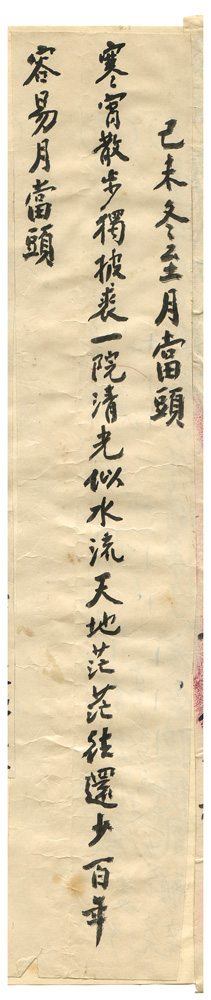 己未冬至月當頭
寒宵散步獨披裘一院清光似水流天地茫茫往還少百年
容易月當頭